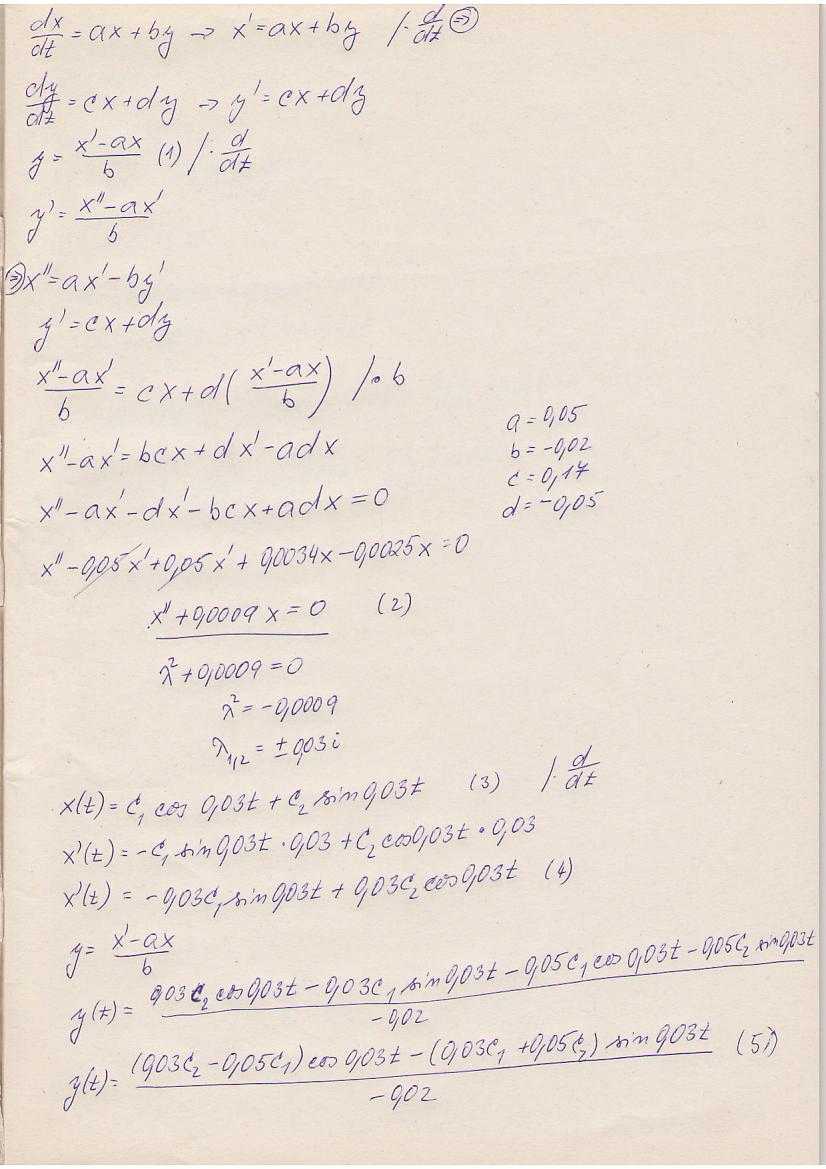 dx/dt = ax + by → x' = ax + by /· d/dt ⇒
dy/dt = cx + dy → y' = cx + dy
y = (x' - ax)/b (1) /· d/dt
y' = (x'' - ax')/b
⇒ x'' = ax' - by'
y' = cx + dy
(x'' - ax')/b = cx + d( (x' - ax)/b ) /· b
a = 0,05
x'' - ax' = bcx + dx' - adx
b = -0,02
c = 0,17
x'' - ax' - dx' - bcx + adx = 0
d = -0,05
x'' - 0,05x' + 0,05x' + 0,0034x - 0,0025x = 0
x'' + 0,0009x = 0 (2)
λ² + 0,0009 = 0
λ² = -0,0009
λ₁,₂ = ± 0,03i
x(t) = C₁ cos 0,03t + C₂ sin 0,03t (3) /· d/dt
x'(t) = -C₁ sin 0,03t · 0,03 + C₂ cos 0,03t · 0,03
x'(t) = -0,03C₁ sin 0,03t + 0,03C₂ cos 0,03t (4)
y = (x' - ax)/b
y(t) = (0,03C₂ cos 0,03t - 0,03C₁ sin 0,03t - 0,05C₁ cos 0,03t - 0,05C₂ sin 0,03t)/-0,02
y(t) = ((0,03C₂ - 0,05C₁) cos 0,03t - (0,03C₁ + 0,05C₂) sin 0,03t)/-0,02 (5)